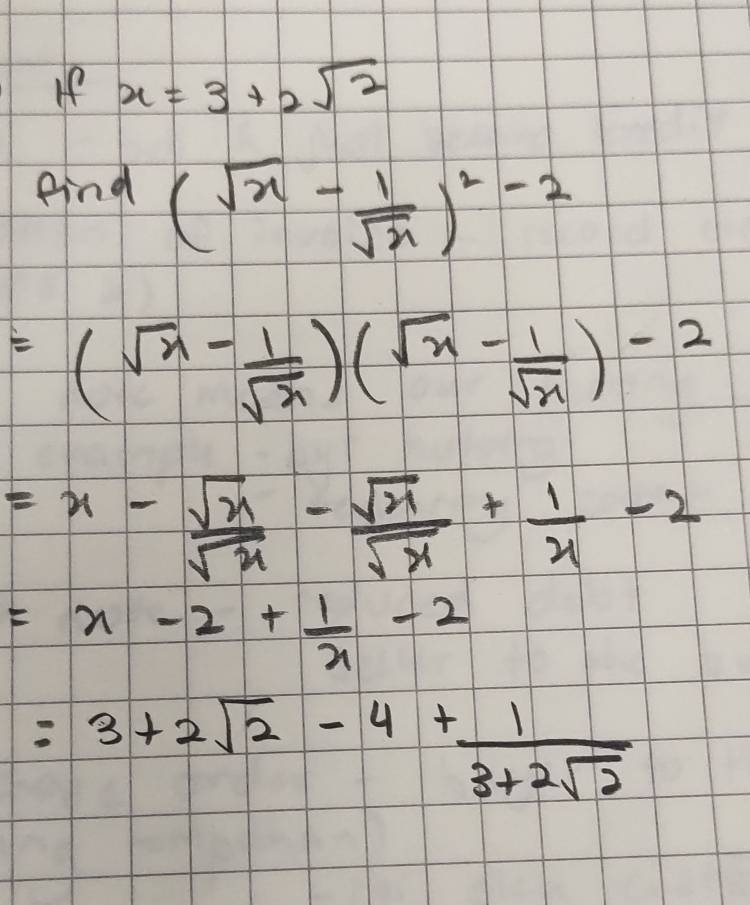 If x = 3 + 2√2
find (√x - 1/√x)² - 2
= (√x - 1/√x)(√x - 1/√x) - 2
= x - √x/√x - √x/√x + 1/x - 2
= x - 2 + 1/x - 2
= 3 + 2√2 - 4 + 1/(3+2√2)